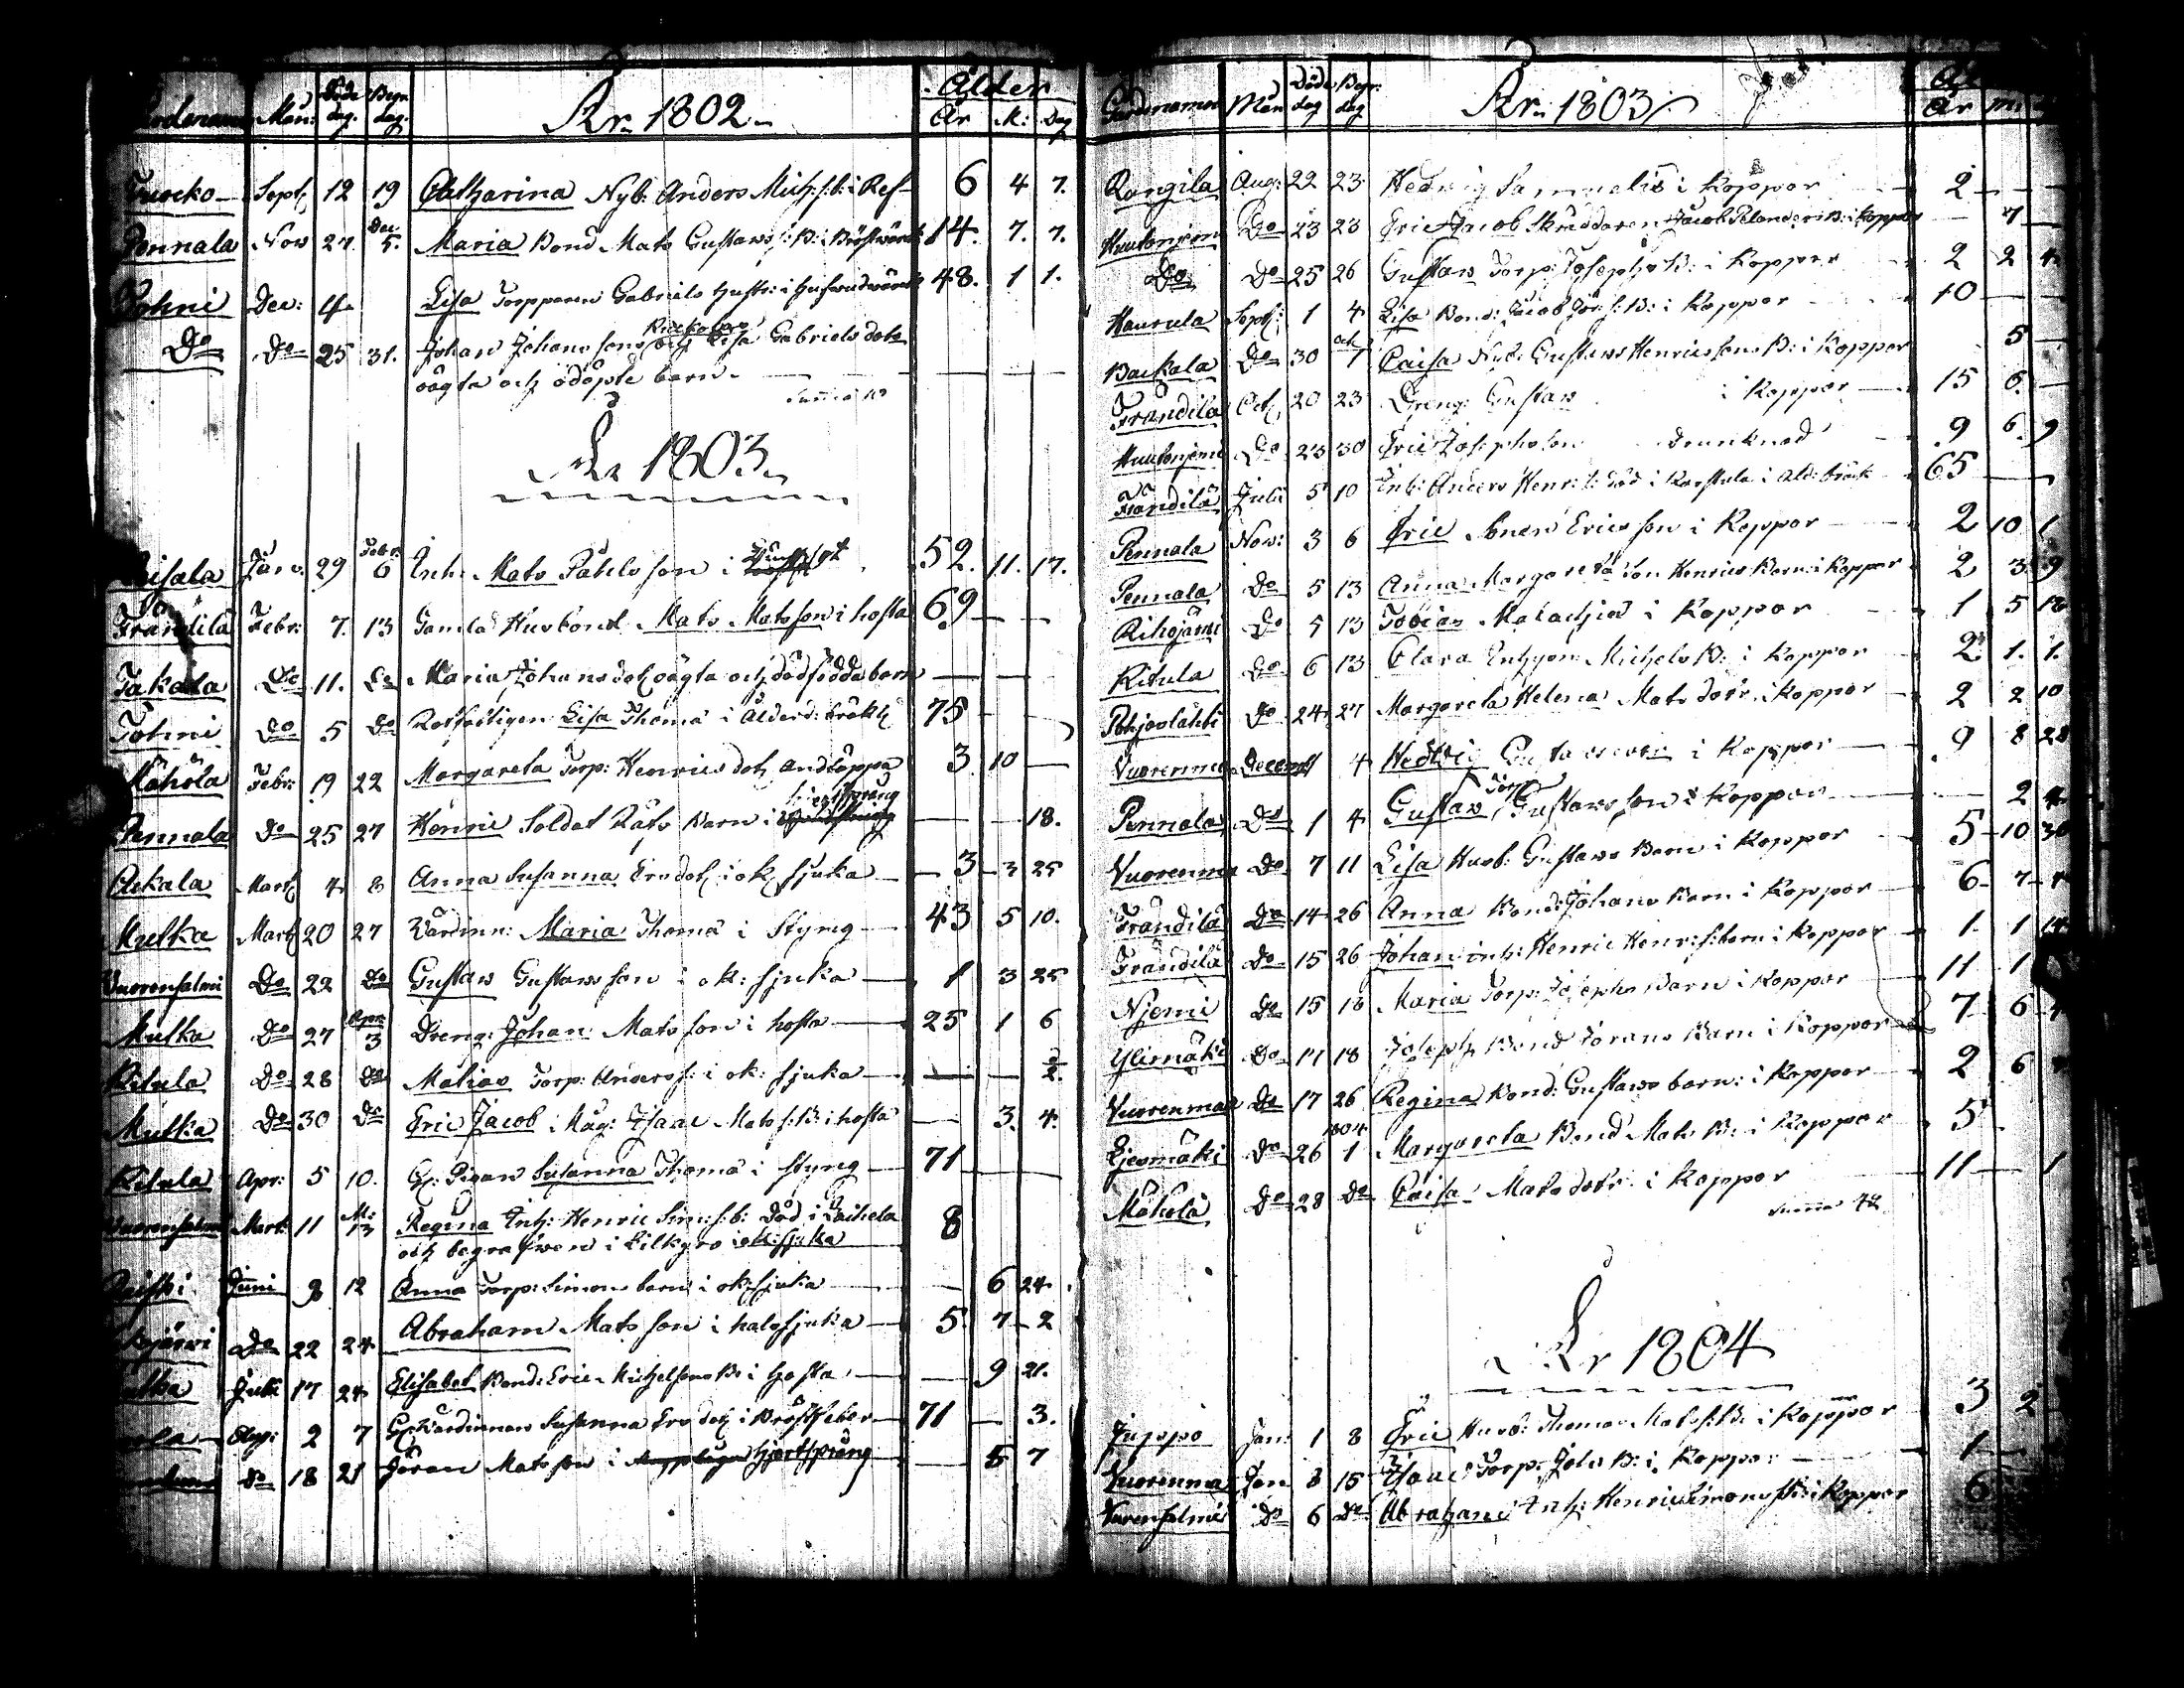 Mån: Döde dag. Begr. dag. Åhr 1802 Ålder År M: Dag
Sept 12 19 Catharina Nyb: Anders Mich: s: b: i Ref 6 4 7.
Pennala Nov 27. Dec. 5. Maria Bond Mats Gustafs s: B: i 14. 7. 7.
Dec: 4. Lisa Torpparen Gabriels hustr: i hufvudvärk 48. 1 1.
Do Do 25 31. Johan Johansons och Lisa Gabriels dott
oägta och odöpte barn
Åhr 1803
Janu: 29 Febr: 6 Inh. Mats Påhlsson i 52. 11. 17.
Frändilä Febr: 7. 13 Gamla Husbond Mats Matsson i hosta 69
Jakala Do 11. Do Maria Johans dot oägta och dödfödda barn
Do 5 Do Rotfattigen Lisa Thoma i Ålderd: bräkl 75
Mähölä Febr: 19 22 Margareta Torp: Henrics dot andtäppa 3 10
Pennala Do 25 27 Henric Soldat Räfs Barn i 18.
Askala Mart 4 8 Anna Susanna Ers dot i ok sjuka 3 3 25
Mulka Mart 20 27 Värdinn: Maria Thoma i Styng 43 5 10.
Vuorensalmi Do 22 Do Gustav Gustavsson i ok: sjuka 1 3 25
Mulka Do 27 Apr: 3 Dreng: Johan Matsson i hosta 25 1 6
Ritula Do 28 Do Matias Torp: Anders s: i ok: sjuka 2.
Mulka Do 30 Do Eric Jacob i Måg: Isaac Mats s: B: i hosta 3. 4.
Ritula Apr: 5 10. Susanna Thoma i Styng 71
Vuorensalmi Mart: 11 13 Regina Inh: Henric Sim: s: b: Död i Laihela 8
och begrafwen i Lillkyro i ok: sjuka
Juni 8 12 Anna Torp: Simons barn i ok sjuka 6 24.
Do 22 24 Abraham Matsson i halssjuka 5 7 2
Juli 17 24 Elisabet Bond: Eric Michelsons B: i hosta 9 21.
Aug: 2 7 Värdinnan Susanna Ers dot i Bröstfeber 71 3.
Do 18 21 Göran Matsson i hjertsprång 5 7
Mån Döde dag Begr: dag Åhr 1803 År M:
Rangila Aug: 22 23 Hedvig Samuelis i Koppor 2
Huutoniemi Do 23 23 Eric Jacob Skräddaren Jacob B: i Koppor 7
Do Do 25 26 Gustav Torp: Josephs B: i Koppor 2 2 4
Haurula Sept: 1 4 Lisa Bond: Jacob Jör: s: B: i Koppor 10
Backala Do 30 Oct 7 Caisa Nyb: Gustavs Henricssons B: i Koppor 5
Frändilä Oct 20 23 Dreng: Gustav i Koppor 15 6.
Huutoniemi Do 23 30 Eric Josephsson Drunknad 9 6. 9
Frändilä Juli 5 10 Inh: Anders Henr: s: död i Karstula i Ald: bräck 65
Pennala Nov: 3 6 Eric Sonen Ericsson i Koppor 2 10 1
Pennala Do 5 13 Anna Margareta Son Henrics Barn i Koppor 2 3 9
Rihojärvi Do 5 13 Tobias Malachias i Koppor 1 5 18
Ritula Do 6 13 Clara Michels B: i Koppor 2 1. 1.
Pohjoslahti Do 24 27 Margareta Helena Mats dotr i Koppor 2 2 10
Vuorenma Decem 1 4 Hedvig i Koppor 9 8 28
Pennala Do 1 4 Gustav Torp Gustavsson i Koppor 2 4
Vuorenma Do 7 11 Lisa Husb: Gustavs Barn i Koppor 5 10 30
Frändilä Do 14 26 Anna Bond: Johans Barn i Koppor 6 7
Frändilä Do 15 26 Johan inh: Henric Henr: s: barn i Koppor 1 1 14
Njemi Do 15 18 Maria Torp: Josephs Barn i Koppor 11 1
Ylimäki Do 17 18 Joseph Bond Görans Barn i Koppor 7 6
Vuorenmaa Do 17 26 Regina Bond: Gustavs barn: i Koppor 2 6
Ljesmäki Do 26 1804 1 Margareta Bond Mats B: i Koppor 5
Mäholä Do 28 Do Caisa Mats dotr i Koppor 11 1
Summa 42
Åhr 1804
Juppo Jan: 1 8 Eric Husb: Thomas Mats s: B: i Koppor 3 2
Vuorenma Jan 8 15 Isaac Torp: B: i Koppor 1
Vuorensalmi Do 6 Do Abraham Inh: Henric Simons B: i Koppor 6